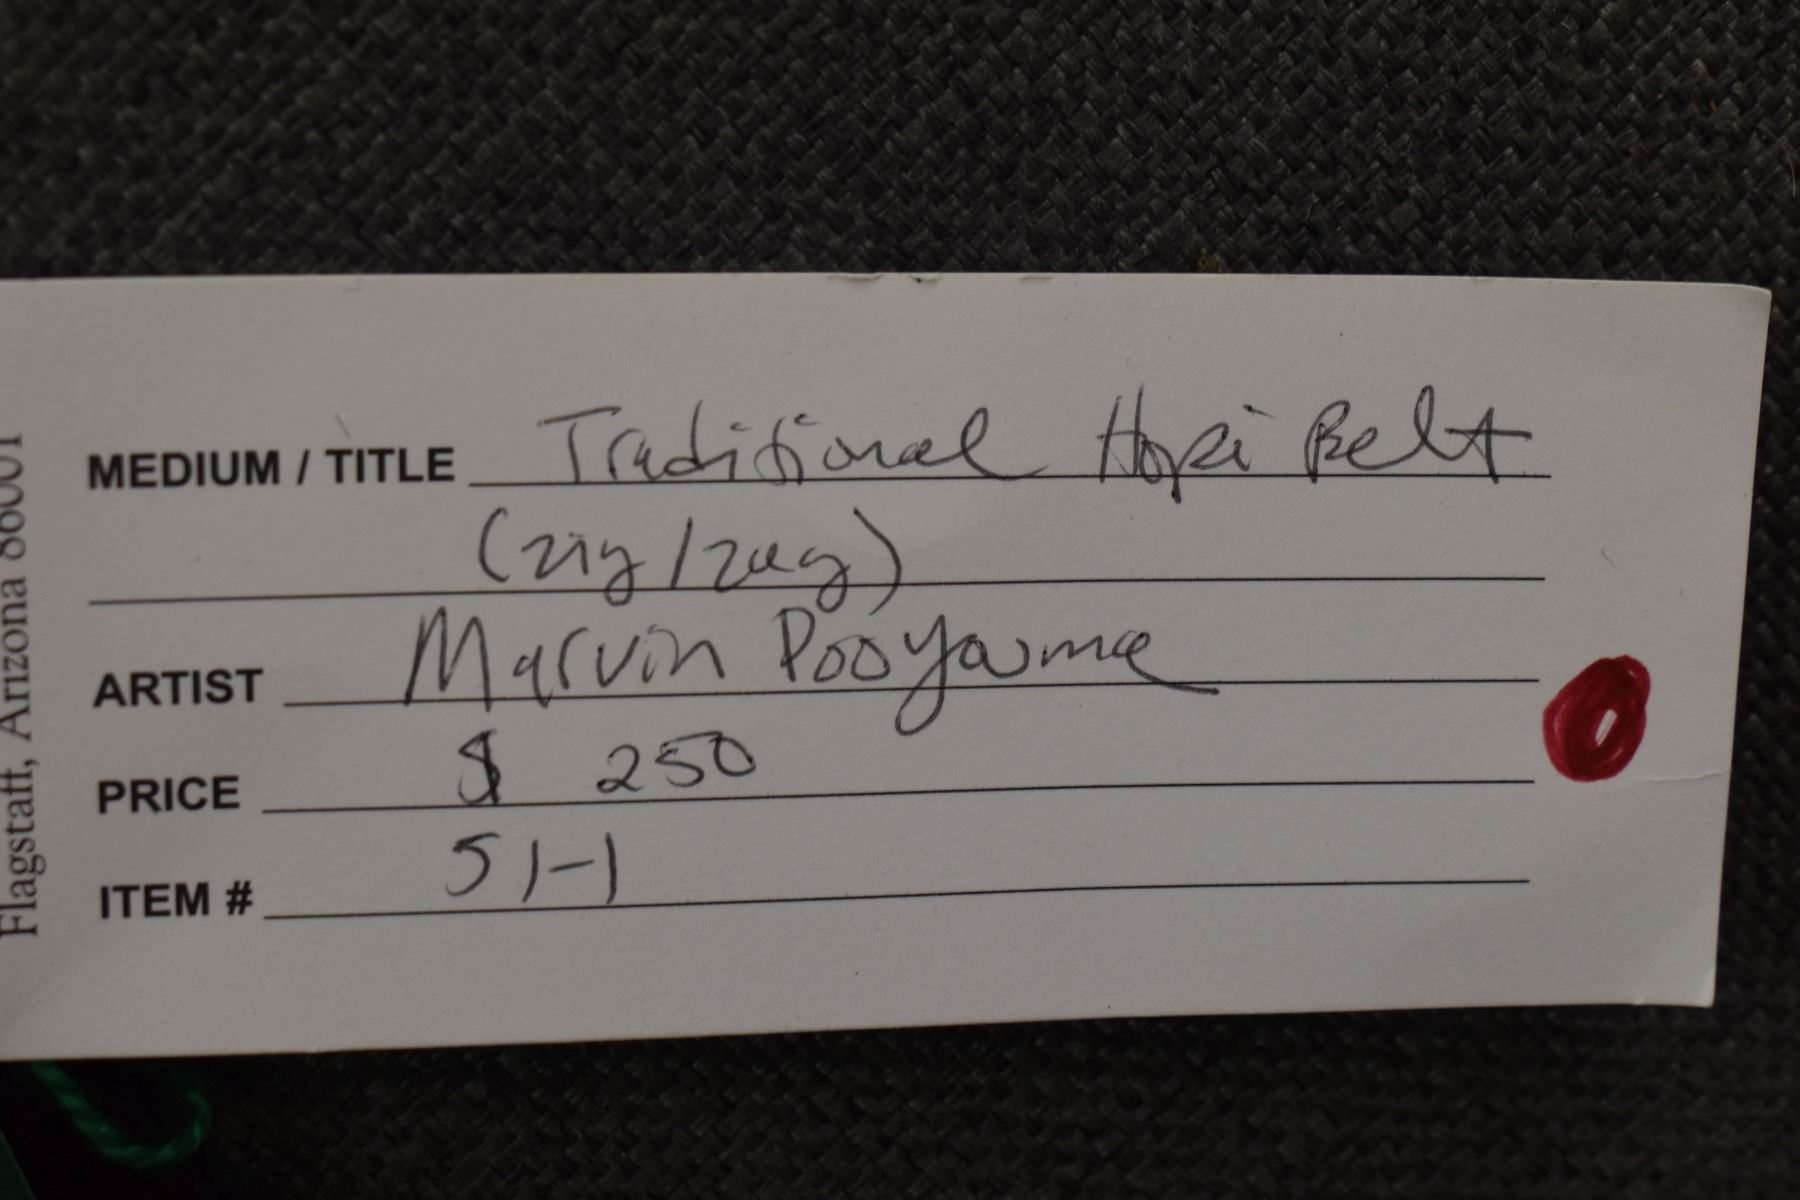 MEDIUM / TITLE Traditional Hopi Belt
(zig/zag)
ARTIST Marvin Pooyouma
PRICE $ 250
ITEM # 51-1
Flagstaff, Arizona 86001